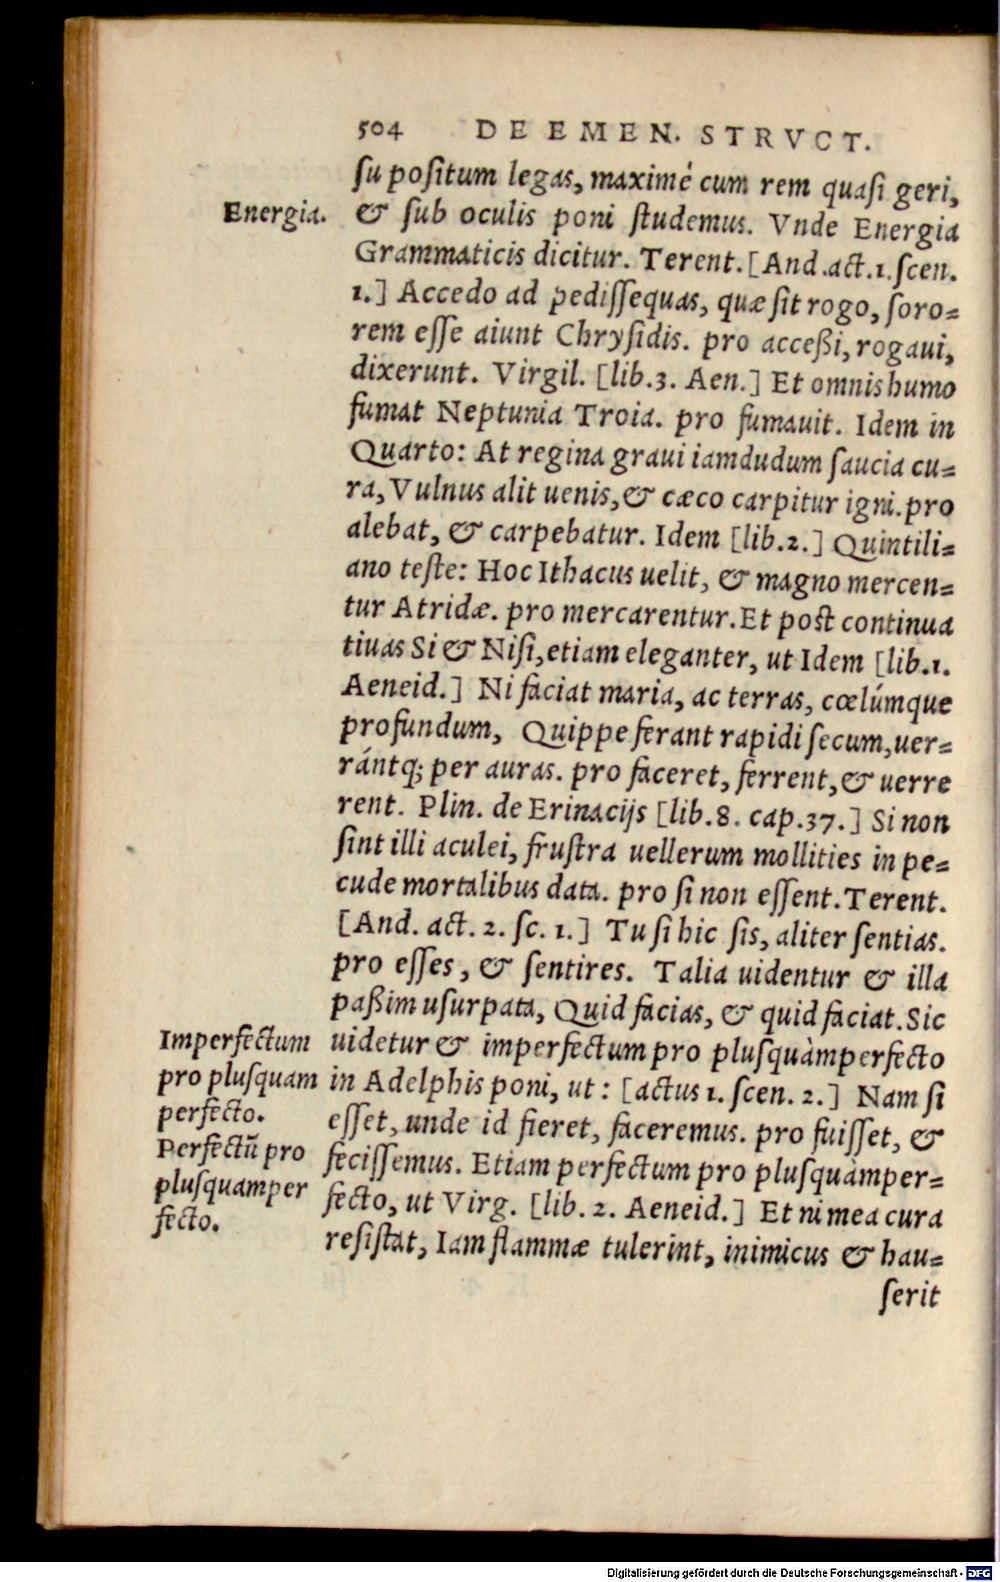 504 DE EMEN. STRVCT.
ſu poſitum legas, maximé cum rem quaſi geri,
Energia.
& ſub oculis poni ſtudemus. Vnde Energia
Grammaticis dicitur. Terent. [And. act. 1. ſcen.
1.] Accedo ad pediſſequas, quæ ſit rogo, ſoro=
rem eſſe aiunt Chryſidis. pro acceßi, rogaui,
dixerunt. Virgil. [lib. 3. Aen.] Et omnis humo
fumat Neptunia Troia. pro fumauit. Idem in
Quarto: At regina graui iamdudum ſaucia cu=
ra, Vulnus alit uenis, & cæco carpitur igni. pro
alebat, & carpebatur. Idem [lib. 2.] Quintili=
ano teſte: Hoc Ithacus uelit, & magno mercen=
tur Atridæ. pro mercarentur. Et poſt continua
tiuas Si & Niſi, etiam eleganter, ut Idem [lib. 1.
Aeneid.] Ni faciat maria, ac terras, cœlúmque
profundum, Quippe ferant rapidi ſecum, uer=
rántq; per auras. pro faceret, ferrent, & uerre
rent. Plin. de Erinacijs [lib. 8. cap. 37.] Si non
ſint illi aculei, fruſtra uellerum mollities in pe=
cude mortalibus data. pro ſi non eſſent. Terent.
[And. act. 2. ſc. 1.] Tu ſi hic ſis, aliter ſentias.
pro eſſes, & ſentires. Talia uidentur & illa
paßim uſurpata, Quid facias, & quid faciat. Sic
uidetur & imperfectum pro pluſquàmperfecto
in Adelphis poni, ut: [actus 1. ſcen. 2.] Nam ſi
eſſet, unde id fieret, faceremus. pro fuiſſet, &
feciſſemus. Etiam perfectum pro pluſquàmper=
fecto, ut Virg. [lib. 2. Aeneid.] Et ni mea cura
reſiſtat, Iam flammæ tulerint, inimicus & hau=
ſerit
Imperfectum
pro pluſquam
perfecto.
Perfectũ pro
pluſquamper
fecto.
Digitalisierung gefördert durch die Deutsche Forschungsgemeinschaft - DFG